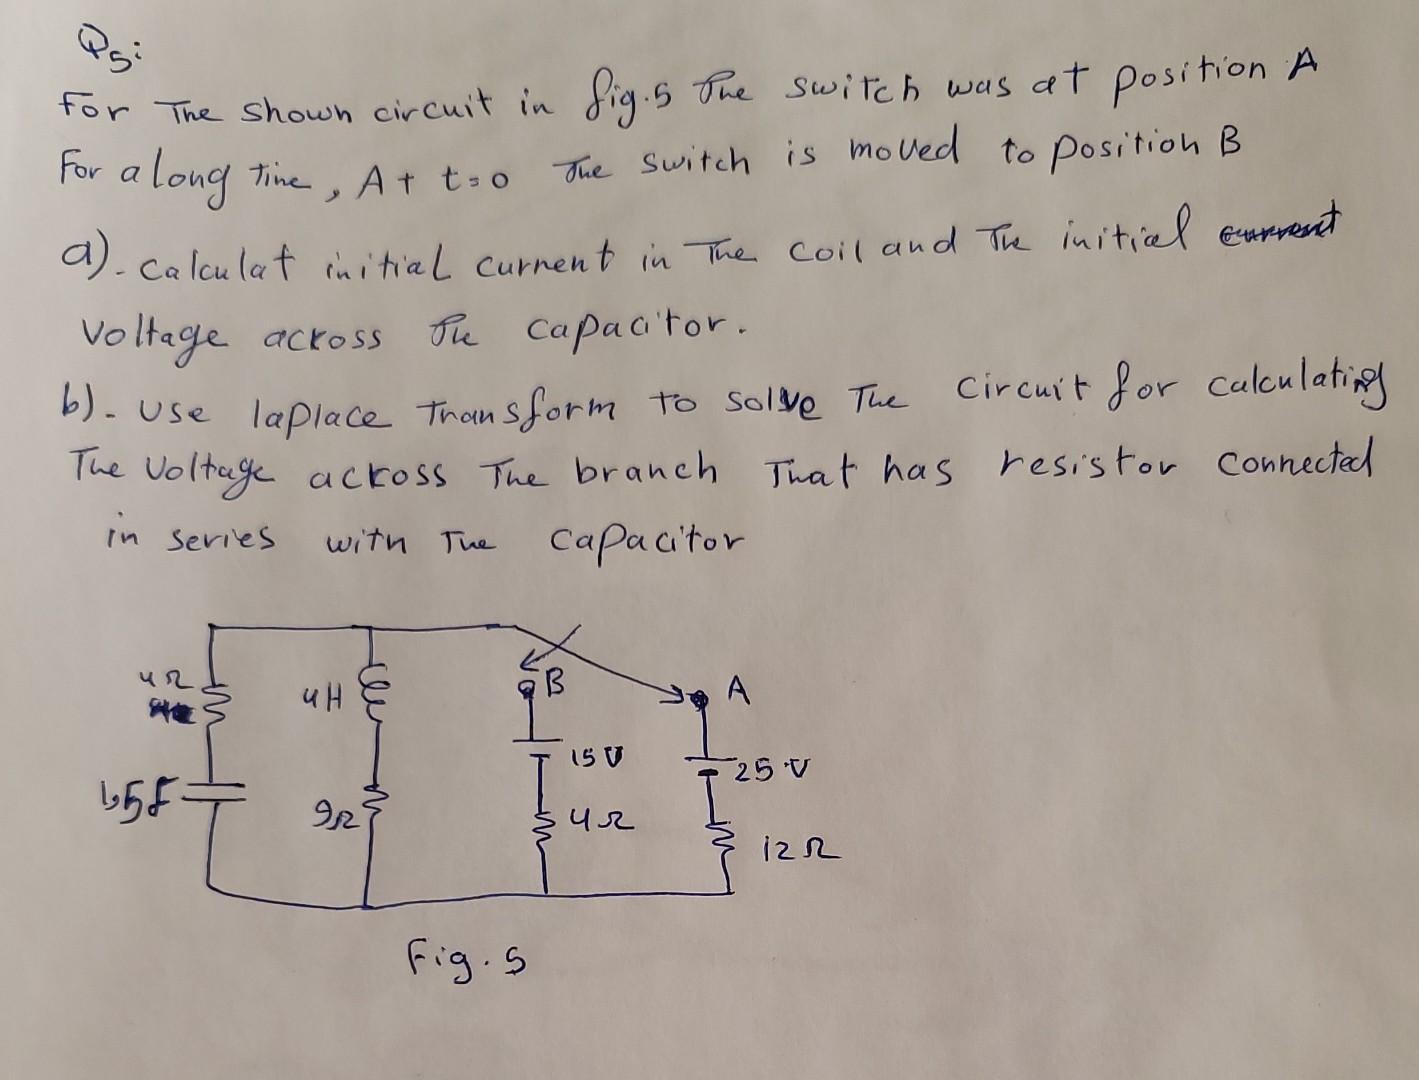 Q5:
For The shown circuit in fig.5 The switch was at position A
For a long tine, At t=0 The switch is moved to position B
a)- calculat initial current in The coil and The initial current
Voltage across The capacitor.
b)- Use laplace transform to solve The circuit for calculating
The Voltage across The branch That has resistor connected
in series with The capacitor
4Ω
4H
B
A
15V
25V
1,5F
9Ω
4Ω
12Ω
Fig. 5